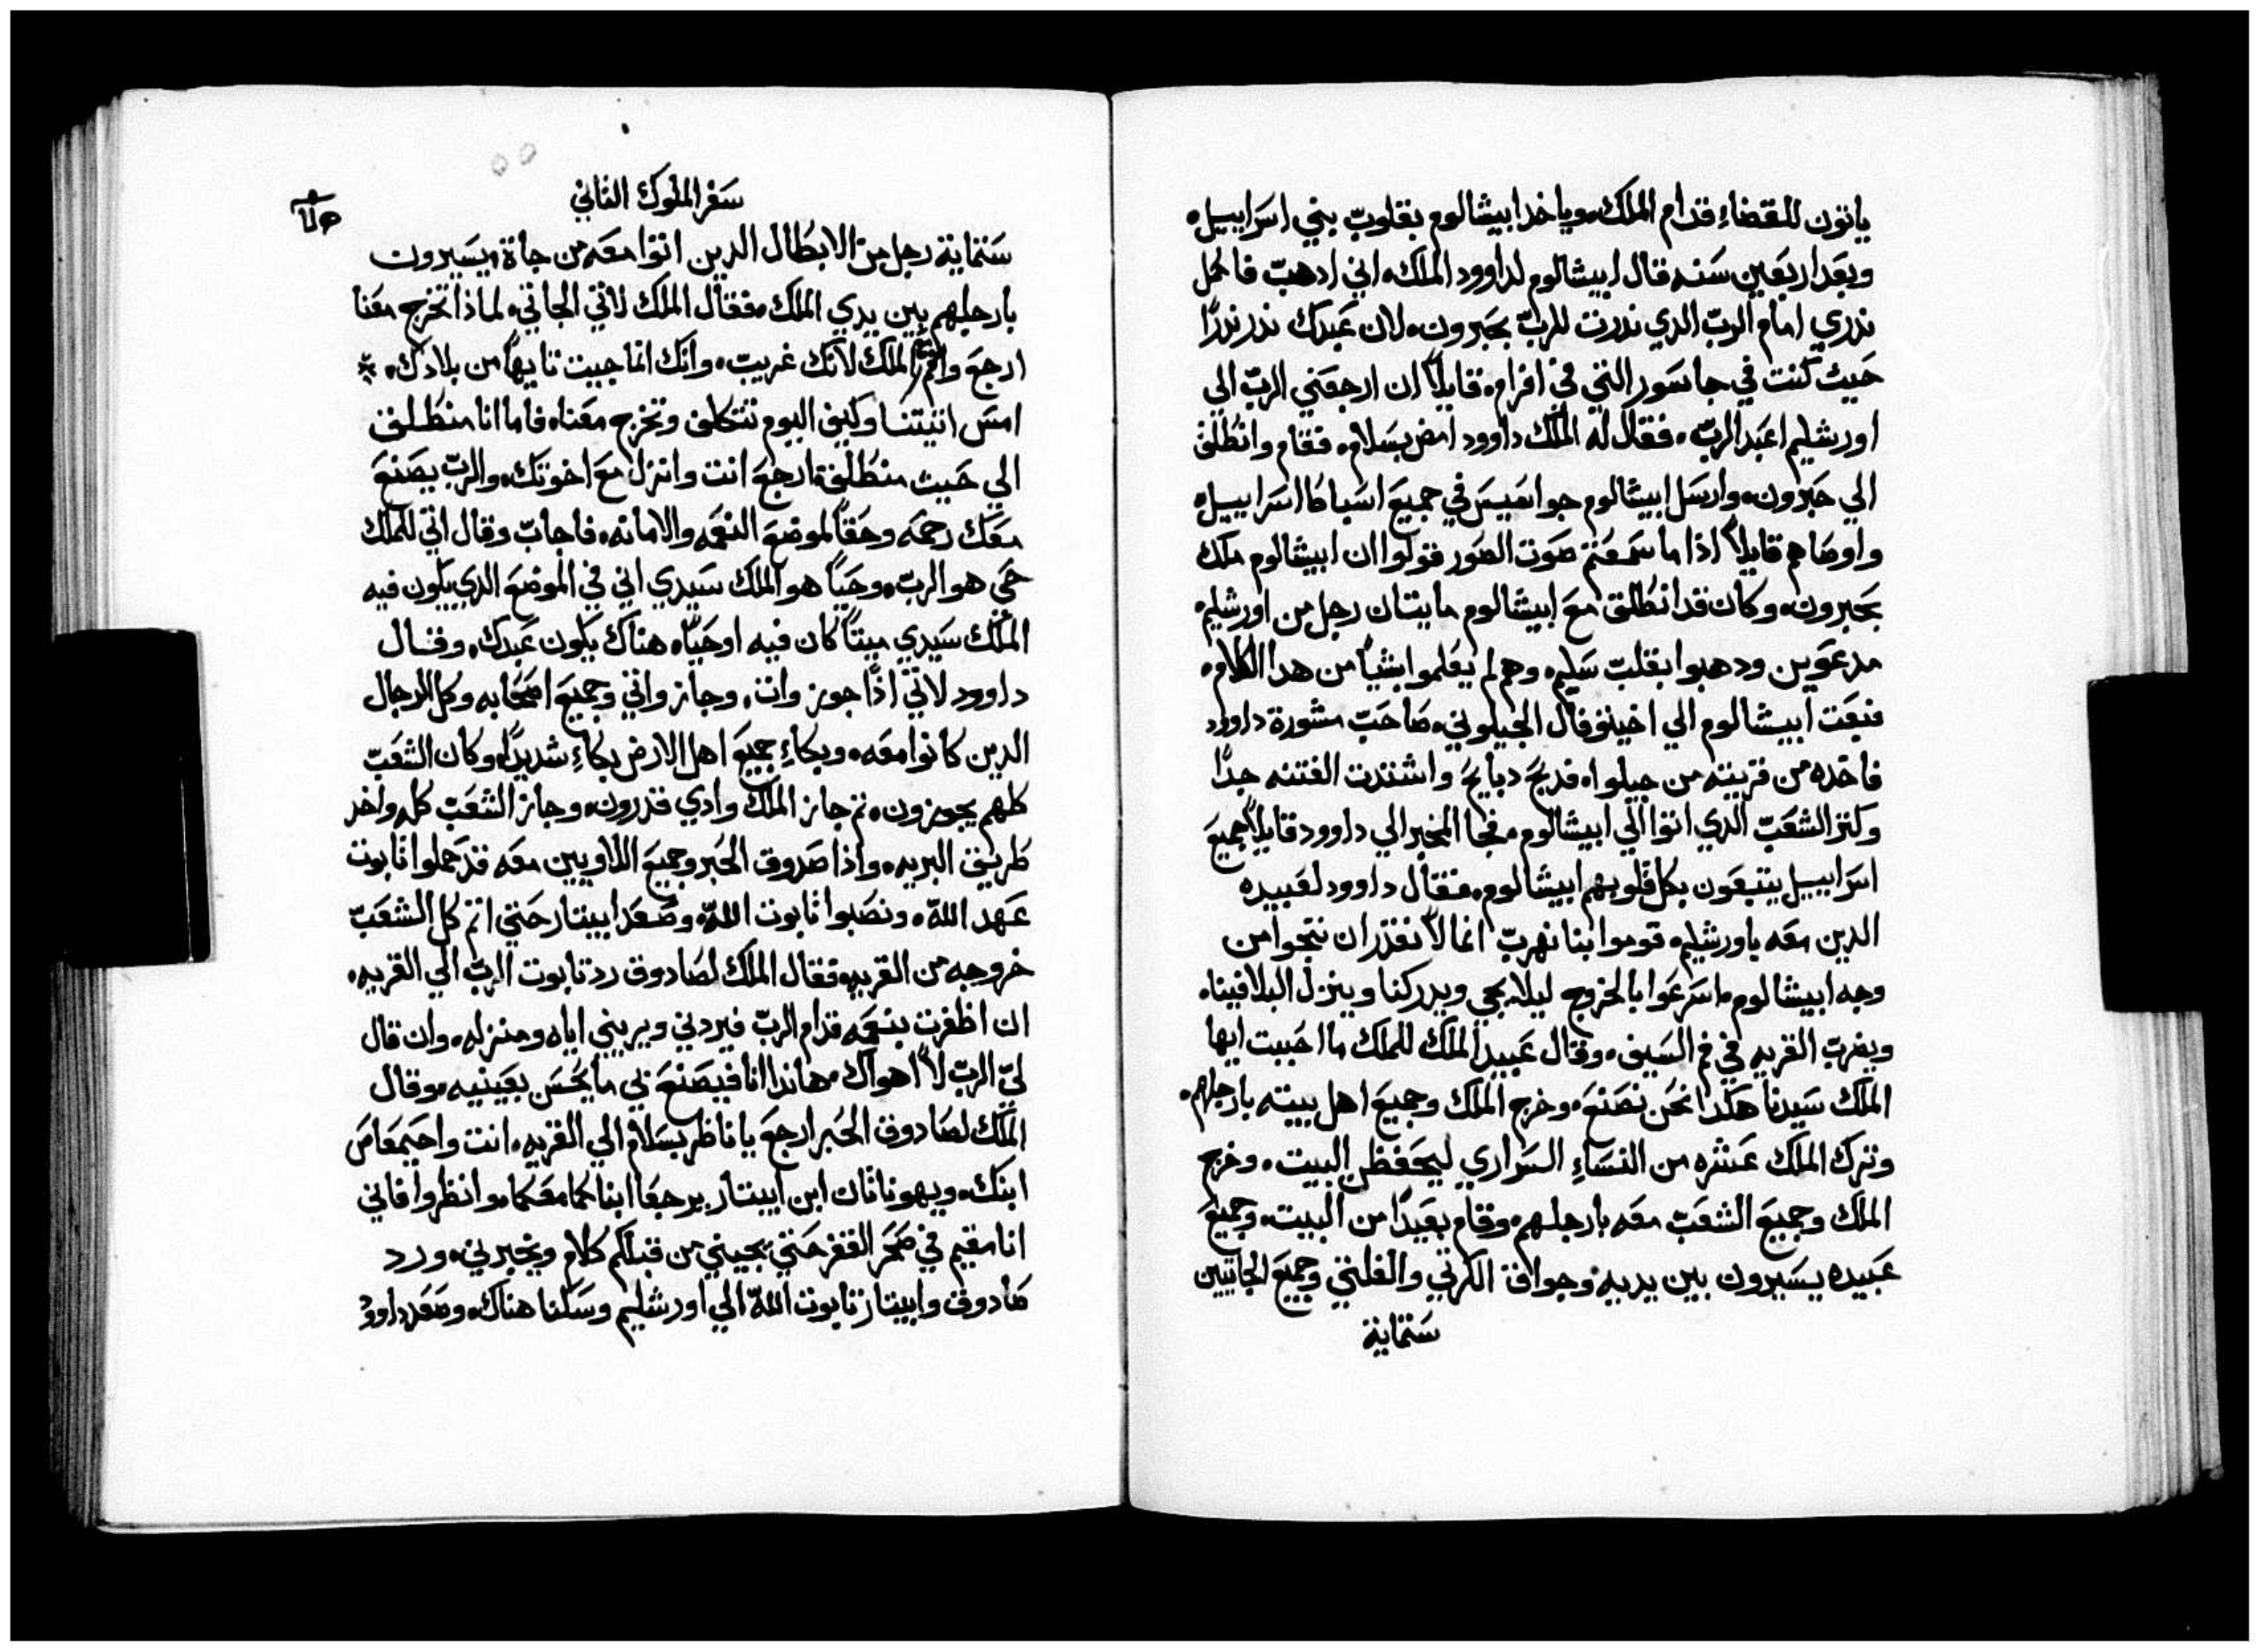 ياتون للقضاء قدام الملك وياخد ابيشالوم بقلوب بني اسراييل.
وبعد اربعين سنه قال ابيشالوم لداوود الملك. اني ادهب فاكمل
ندري امام الرب الدي ندرت للرب بحبرون. لان عبدك ندر ندرًا
حيث كنت في جاسور التي في افرام. قايلاً ان ارجعني الرب الي
اورشليم اعبد الرب. فقال له الملك داوود امض بسلام. فقام وانطلق
الي حبرون. وارسل ابيشالوم جواسيس في جميع اسباط اسراييل.
واوصاهم قايلاً اذا ما سمعتم صوت الصور قولوا ان ابيشالوم ملك
بحبرون. وكان قد انطلق مع ابيشالوم مايتان رجل من اورشليم
مدعوين ودهبوا بقلب سليم. وهم لم يعلموا بشياً من هدا الكلام.
فبعت ابيشالوم الي اخيتوفال الجيلوني. صاحب مشورة داوود
فاخده من قريته من جيلوا. فدبح دبايح واشتدت الفتنه جدًا
وكتر الشعب الدي اتوا الي ابيشالوم. فجا المخبر الي داوود قايلاً جميع
اسراييل يتبعون بكل قلوبهم ابيشالوم. فقال داوود لعبيده
الدين معه باورشليم. قوموا بنا نهرب انما لا نقدر ان ننجوا من
وجه ابيشالوم. اسرعوا بالخروج ليلا يجي ويدركنا وينزل البلا فينا.
ويضرب القريه في فم السيف. وقال عبيد الملك للملك ما احببت ايها
الملك سيدنا هكدا نحن نصنع. وخرج الملك وجميع اهل بيته بارجلهم.
وترك الملك عشره من النساءِ السراري ليحفظن البيت. وخرج
الملك وجميع الشعب معه بارجلهم. وقام بعيدًا من البيت. وجميع
عبيده يسيرون بين يديه. وجواق الكرتي والفلتي وجميع الجاتيين
ستماية
سفر الملوك الثاني
ستماية رجل من الابطال الدين اتوا معه من جاة. يسيرون
بارجلهم بين يدي الملك. فقال الملك لاتي الجاتي. لماذا تخرج معنا
ارجع واقم مع الملك لانك غريب. وانك انما جيت تايهاً من بلادك.
امس اتيتنا وكيف اليوم تتكلف وتخرج معنا. فاما انا منطلق
الي حيث منطلق. ارجع انت وانزل مع اخوتك. والرب يصنع
معك رحمه وحقاً لموضع النعمه والامانه. فاجاب وقال اتي للملك
حي هو الرب. وحياً هو الملك سيدي اني في الموضع الدي يكون فيه
الملك سيدي ميتاً كان فيه او حيًا. هناك يكون عبدك. وقال
داوود لاتي اذًا جوز وانت. وجاز واتي وجميع اصحابه وكل الرجال
الدين كانوا معه. وبكاءِ جميع اهل الارض بكاءِ شديدًا. وكان الشعب
كلهم يجوزون. تم جاز الملك وادي قدرون. وجاز الشعب كله واخد
طريق البريه. واذا صدوق الحبر وجميع اللاويين معه قد حملوا تابوت
عهد الله. ونصبوا تابوت الله. وصعد ابيتار حتي اتم كل الشعب
خروجه من القريه. فقال الملك لصادوق رد تابوت الرب الي القريه.
ان اظفرت بنعمه قدام الرب فيردني ويريني اياه ومنزله. وان قال
لي الرب لا اهواك. هاندا انا فيصنع بي ما يحسن بعينيه. وقال
الملك لصادوق الحبر ارجع يا ناظر بسلام الي القريه. انت واحيمعاص
ابنك. ويهوناتان ابن ابيتار يرجعا ابناكما معكما. وانظروا فاني
انا مقيم في صحر القفر حتي يجيني من قبلكم كلام ويخبرني. ورد
صادوق وابيتار تابوت الله الي اورشليم وسكنا هناك. وصعد داوود